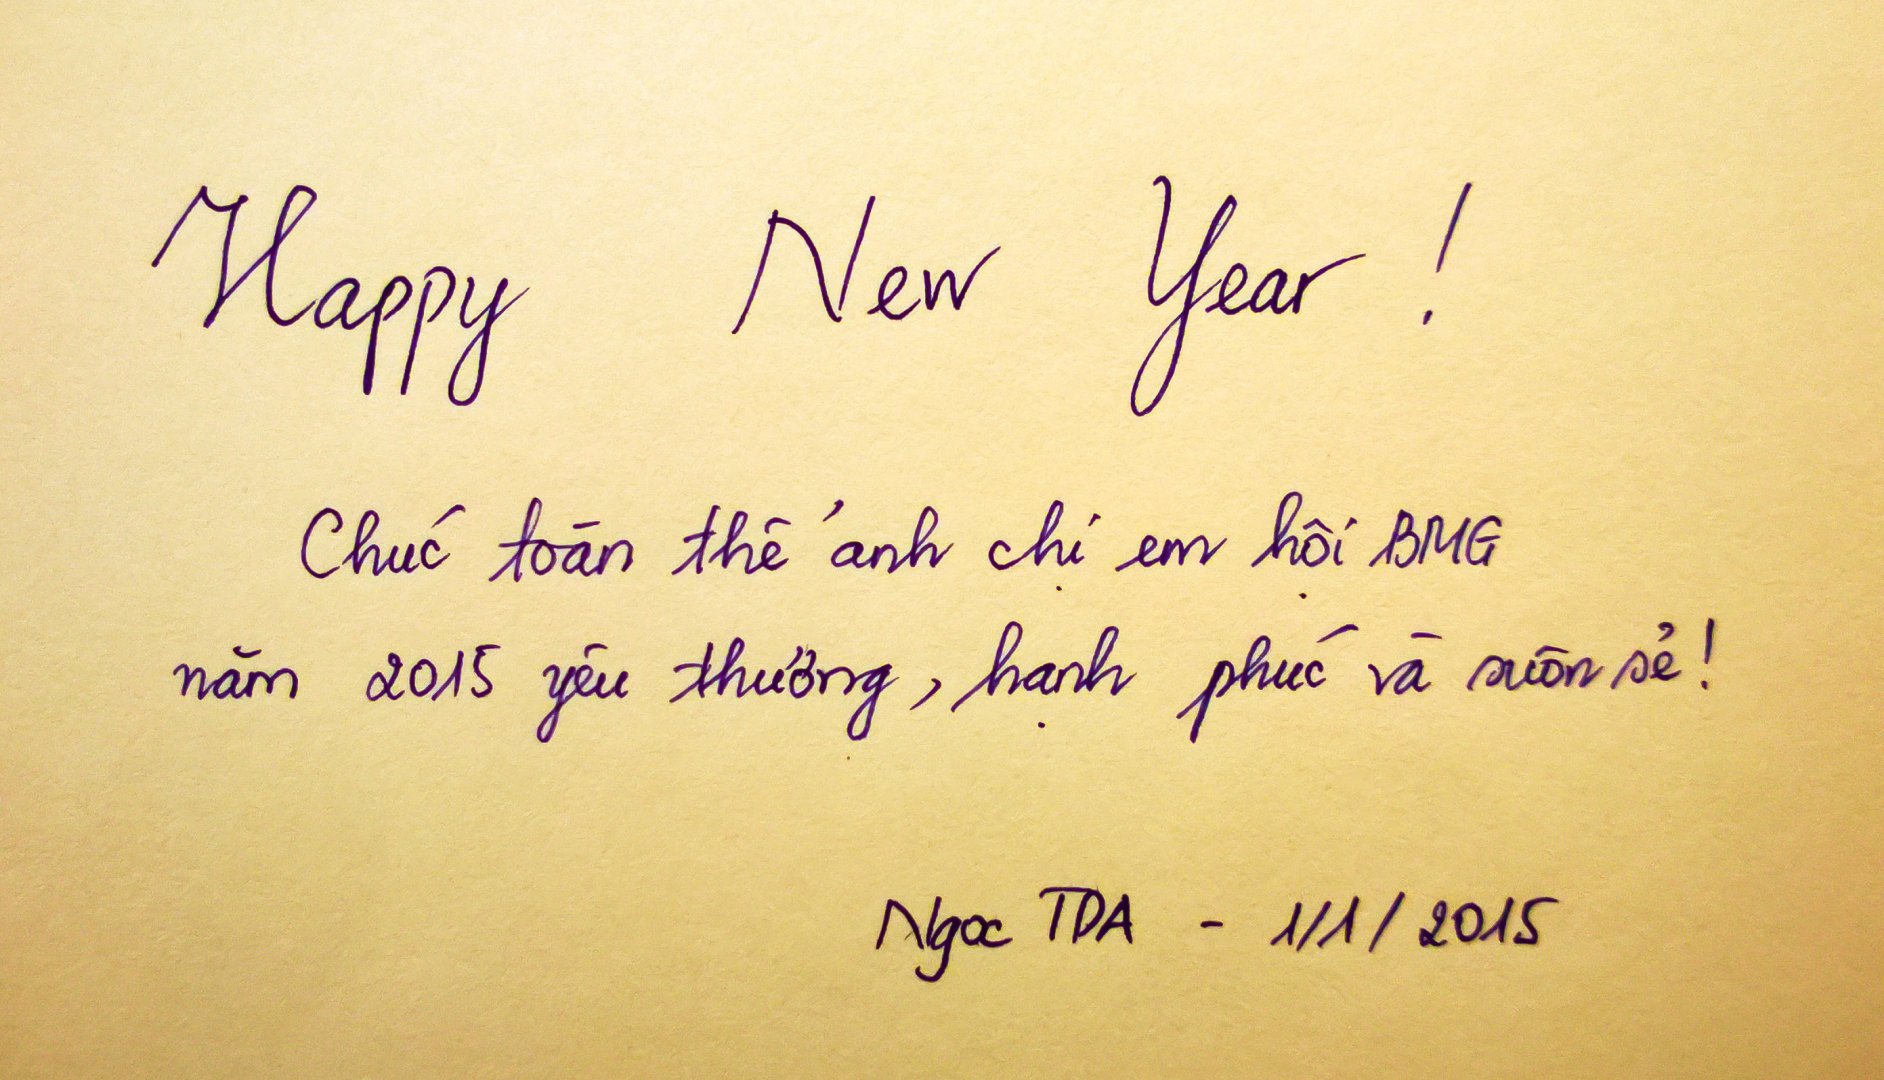 Happy New Year !
Chúc toàn thể anh chị em hội BMG
năm 2015 yêu thương, hạnh phúc và suôn sẻ!
Ngoc TDA - 1/1/2015